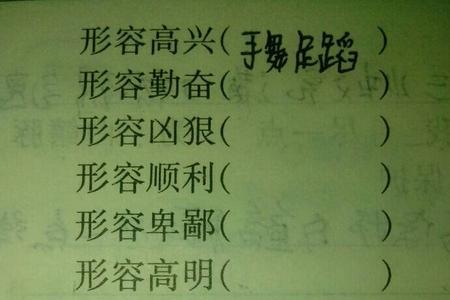 形容高兴(手舞足蹈)
形容勤奋( )
形容凶狠( )
形容顺利( )
形容卑鄙( )
形容高明( )